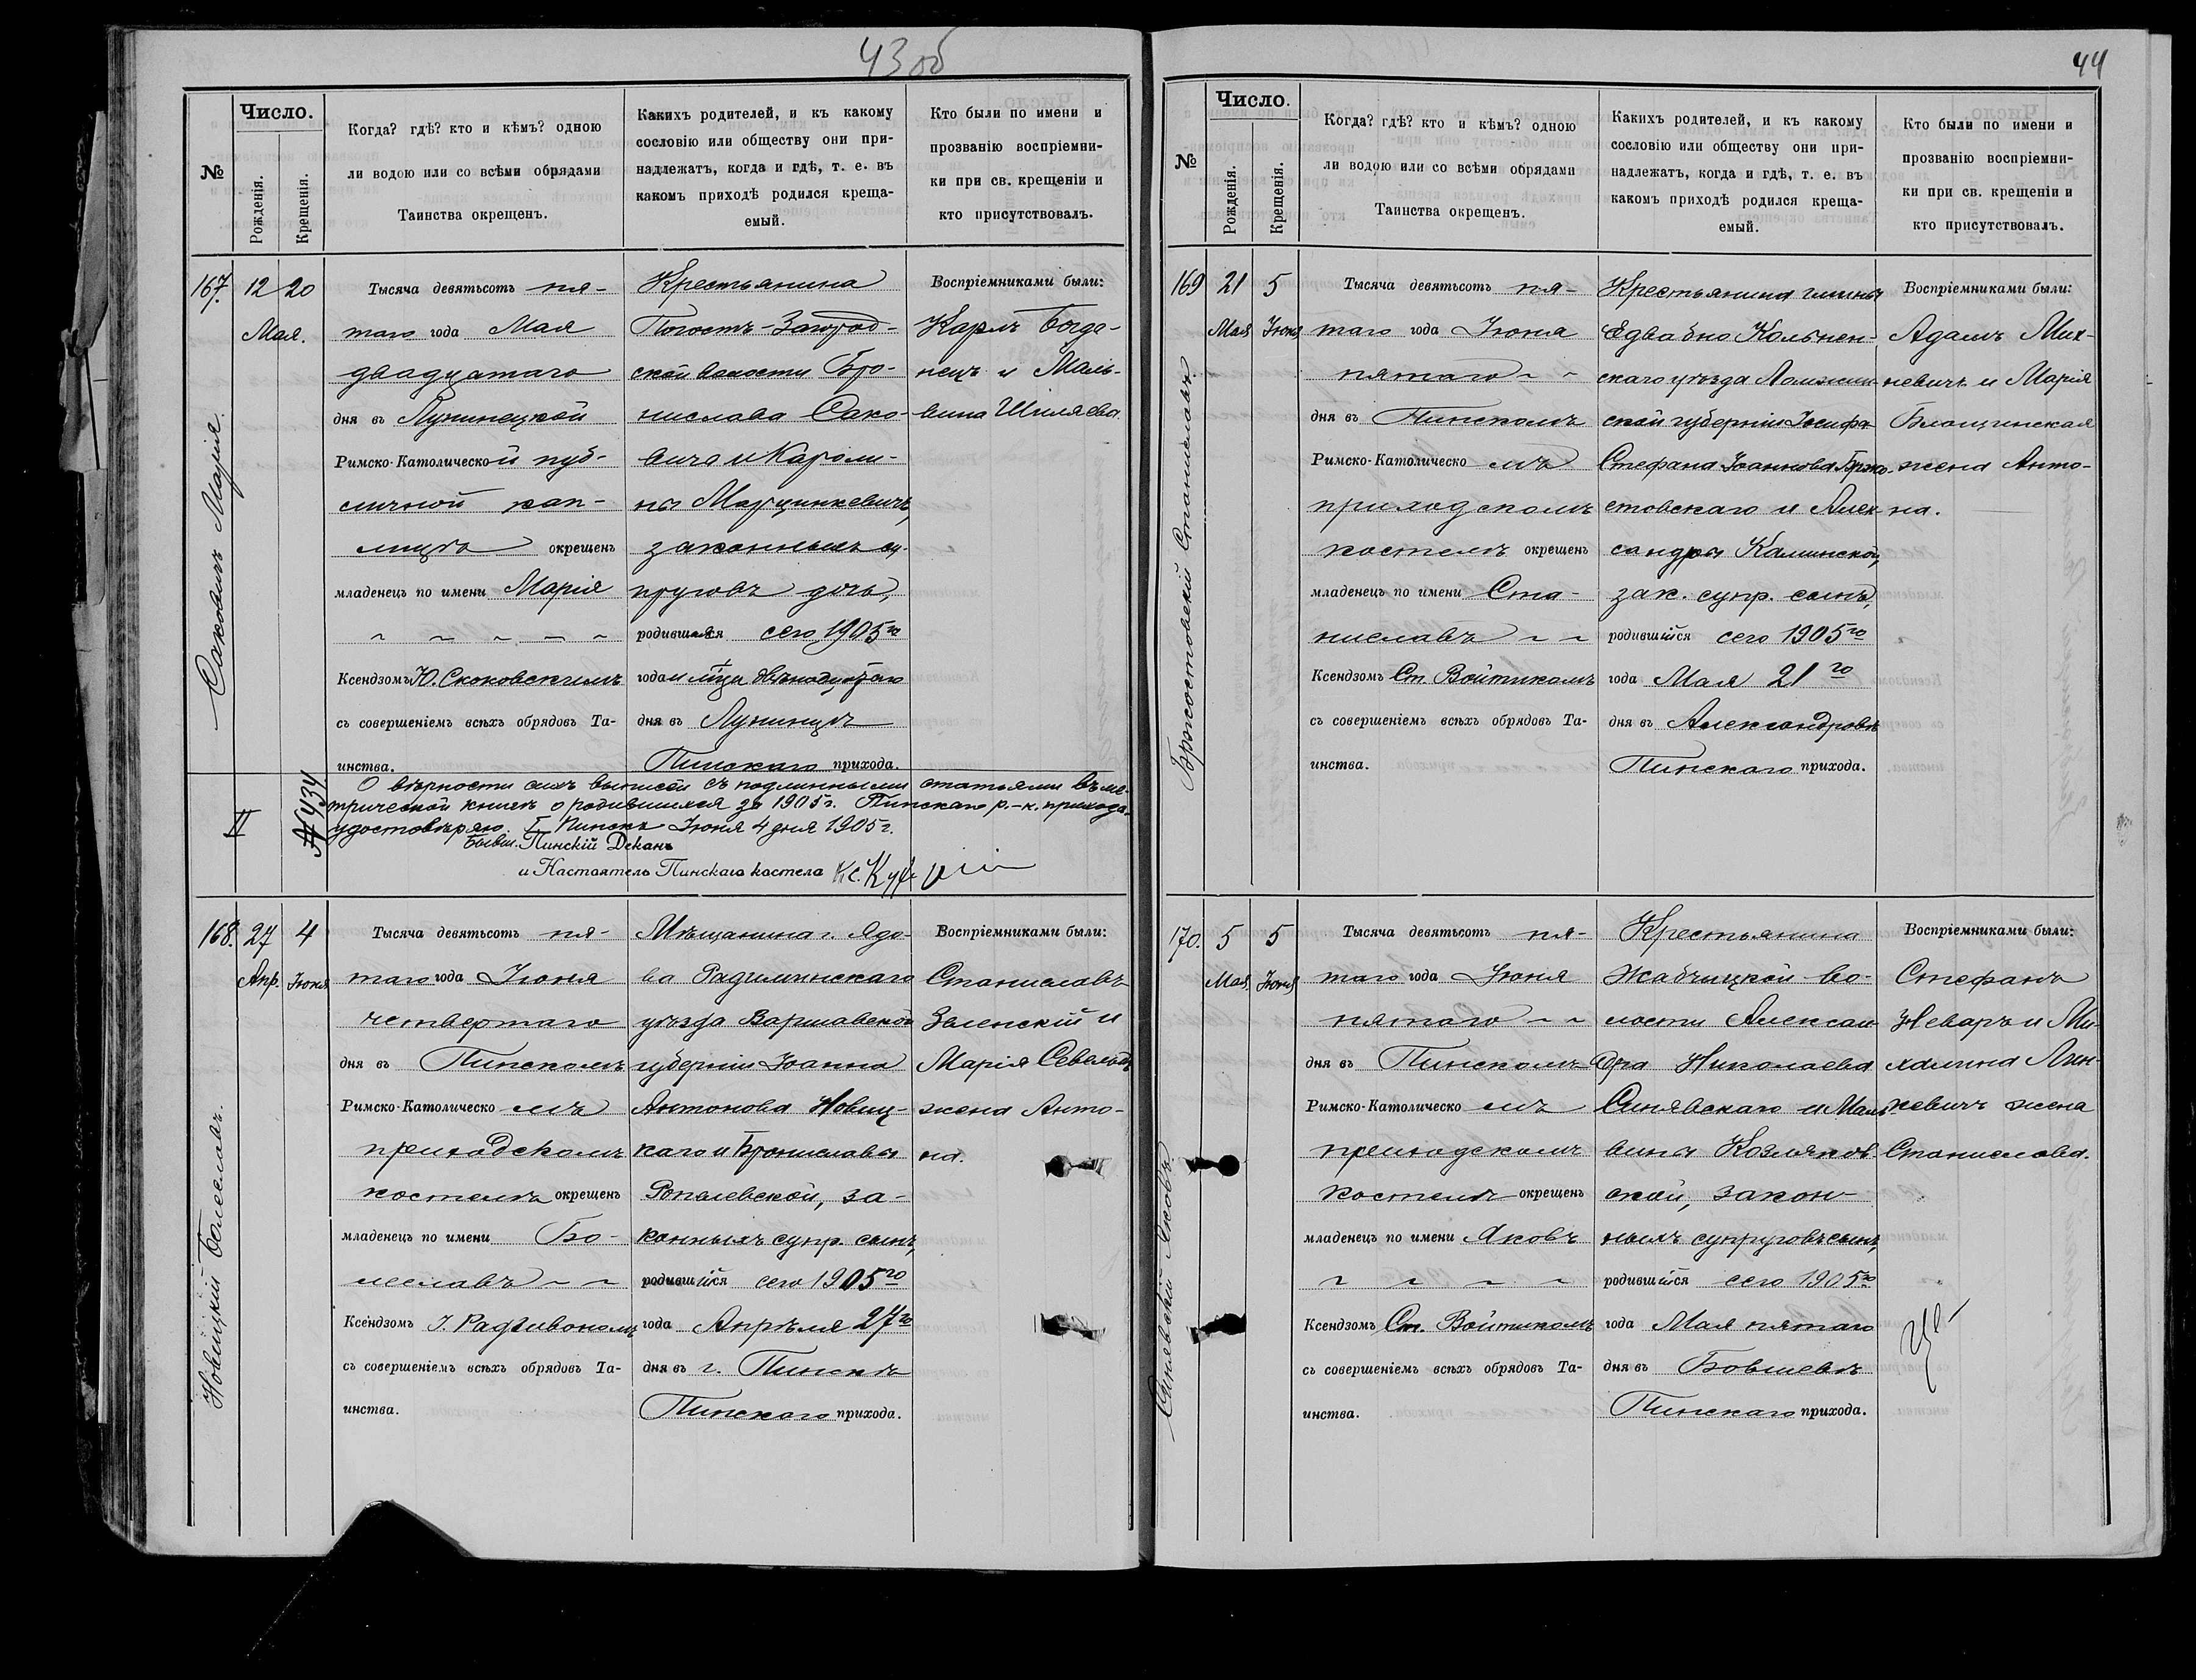 43 об
№
Число.
Рожденія.
Крещенія.
Когда? гдѣ? кто и кѣмъ? одною
ли водою или со всѣми обрядами
Таинства окрещенъ.
Какихъ родителей, и къ какому
сословію или обществу они при-
надлежатъ, когда и гдѣ, т. е. въ
какомъ приходѣ родился креща-
емый.
Кто были по имени и
прозванію воспріемни-
ки при св. крещеніи и
кто присутствовалъ.
167.
12 20
Мая.
Саковичъ Марія.
Тысяча девятьсотъ пя-
таго года Мая
двадцатаго
дня въ Лунинецкой
Римско-Католической пуб-
личной кап-
лицѣ окрещенъ
младенецъ по имени Марія
Ксендзомъ Ю. Скоковскимъ
съ совершеніемъ всѣхъ обрядовъ Та-
инства.
Крестьянина
Погостъ-Загород-
ской волости Бро-
нислава Сако-
вича и Кароли-
ны Марцинкевичъ,
законныхъ су-
пруговъ дочь,
родившаяся сего 1905го
года м̃ца двѣнадцатаго
дня въ Лунинцѣ
Пинскаго прихода.
Воспріемниками были:
Карлъ Богда-
нецъ и Маль-
вина Шиляева
II
№ 434
О вѣрности сихъ выписей съ подлинными статьями въ ме-
трической книгѣ о родившихся за 1905 г. Пинскаго р.-к. прихода
удостовѣряю. Г. Пинскъ Июня 4 дня 1905 г.
Бывш. Пинскій Деканъ
и Настоятель Пинскаго костела Кс.
168.
27 4
Апр. Іюня
Новицкій Болеславъ.
Тысяча девятьсотъ пя-
таго года Іюня
четвертаго
дня въ Пинскомъ
Римско-Католическомъ
приходскомъ
костелѣ окрещенъ
младенецъ по имени Бо-
леславъ
Ксендзомъ І. Радзивономъ
съ совершеніемъ всѣхъ обрядовъ Та-
инства.
Мѣщанина г. Ядо-
ва Радиминскаго
уѣзда Варшавской
губерніи Іоанна
Антонова Новиц-
каго и Брониславы
Ропелевской, за-
конныхъ супр. сынъ,
родившійся сего 1905го
года Апрѣля 27го
дня въ г. Пинскѣ
Пинскаго прихода.
Воспріемниками были:
Станиславъ
Зеленскій и
Марія
жена Анто-
на.
44
№
Число.
Рожденія.
Крещенія.
Когда? гдѣ? кто и кѣмъ? одною
ли водою или со всѣми обрядами
Таинства окрещенъ.
Какихъ родителей, и къ какому
сословію или обществу они при-
надлежатъ, когда и гдѣ, т. е. въ
какомъ приходѣ родился креща-
емый.
Кто были по имени и
прозванію воспріемни-
ки при св. крещеніи и
кто присутствовалъ.
169
21 5
Мая Іюня
Бржостовскій Станиславъ.
Тысяча девятьсотъ пя-
таго года Іюня
пятаго
дня въ Пинскомъ
Римско-Католическомъ
приходскомъ
костелѣ окрещенъ
младенецъ по имени Ста-
ниславъ
Ксендзомъ Ст. Войтикомъ
съ совершеніемъ всѣхъ обрядовъ Та-
инства.
Крестьянина гмины
Едвабно Кольнен-
скаго уѣзда Ломжин-
ской губерніи Іосифа-
Стефана Іоаннова Бржо-
стовскаго и Алек-
сандры Калинской,
зак. супр. сынъ,
родившійся сего 1905го
года Мая 21го
дня въ Александровѣ
Пинскаго прихода.
Воспріемниками были:
Адамъ Мик-
невичъ и Марія
Блощинская
жена Анто-
на.
170.
5 5
Мая. Іюня
Синявскій Яковъ
Тысяча девятьсотъ пя-
таго года Іюня
пятаго
дня въ Пинскомъ
Римско-Католическомъ
приходскомъ
костелѣ окрещенъ
младенецъ по имени Яковъ
Ксендзомъ Ст. Войтикомъ
съ совершеніемъ всѣхъ обрядовъ Та-
инства.
Крестьянина
Жабчицкой во-
лости Алексан-
дра Николаева
Синявскаго и Маль-
вины Козляков-
ской, закон-
ныхъ супруговъ сынъ,
родившійся сего 1905го
года Мая пятаго
дня въ Ботшевѣ
Пинскаго прихода.
Воспріемниками были:
Стефанъ
Неваръ и Ми-
халина Лин-
кевичъ жена
Станислава.